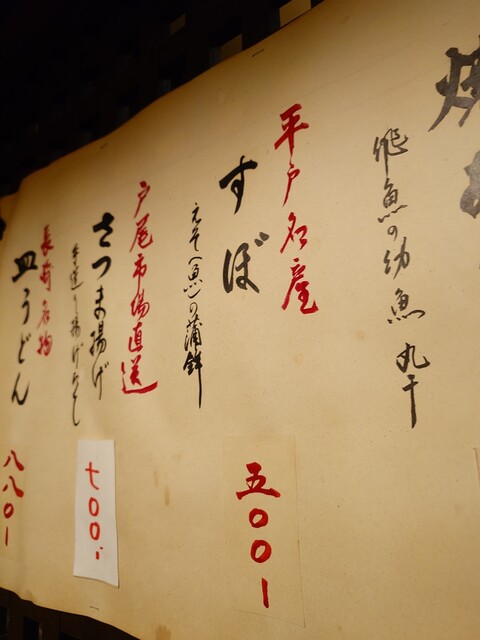 焼あ
飛魚の幼魚 丸干
平戸名産
すぼ
えそ(魚)の蒲鉾
五〇〇ー
戸尾市場直送
さつま揚げ
七〇〇、
長崎名物
皿うどん
八八〇ー